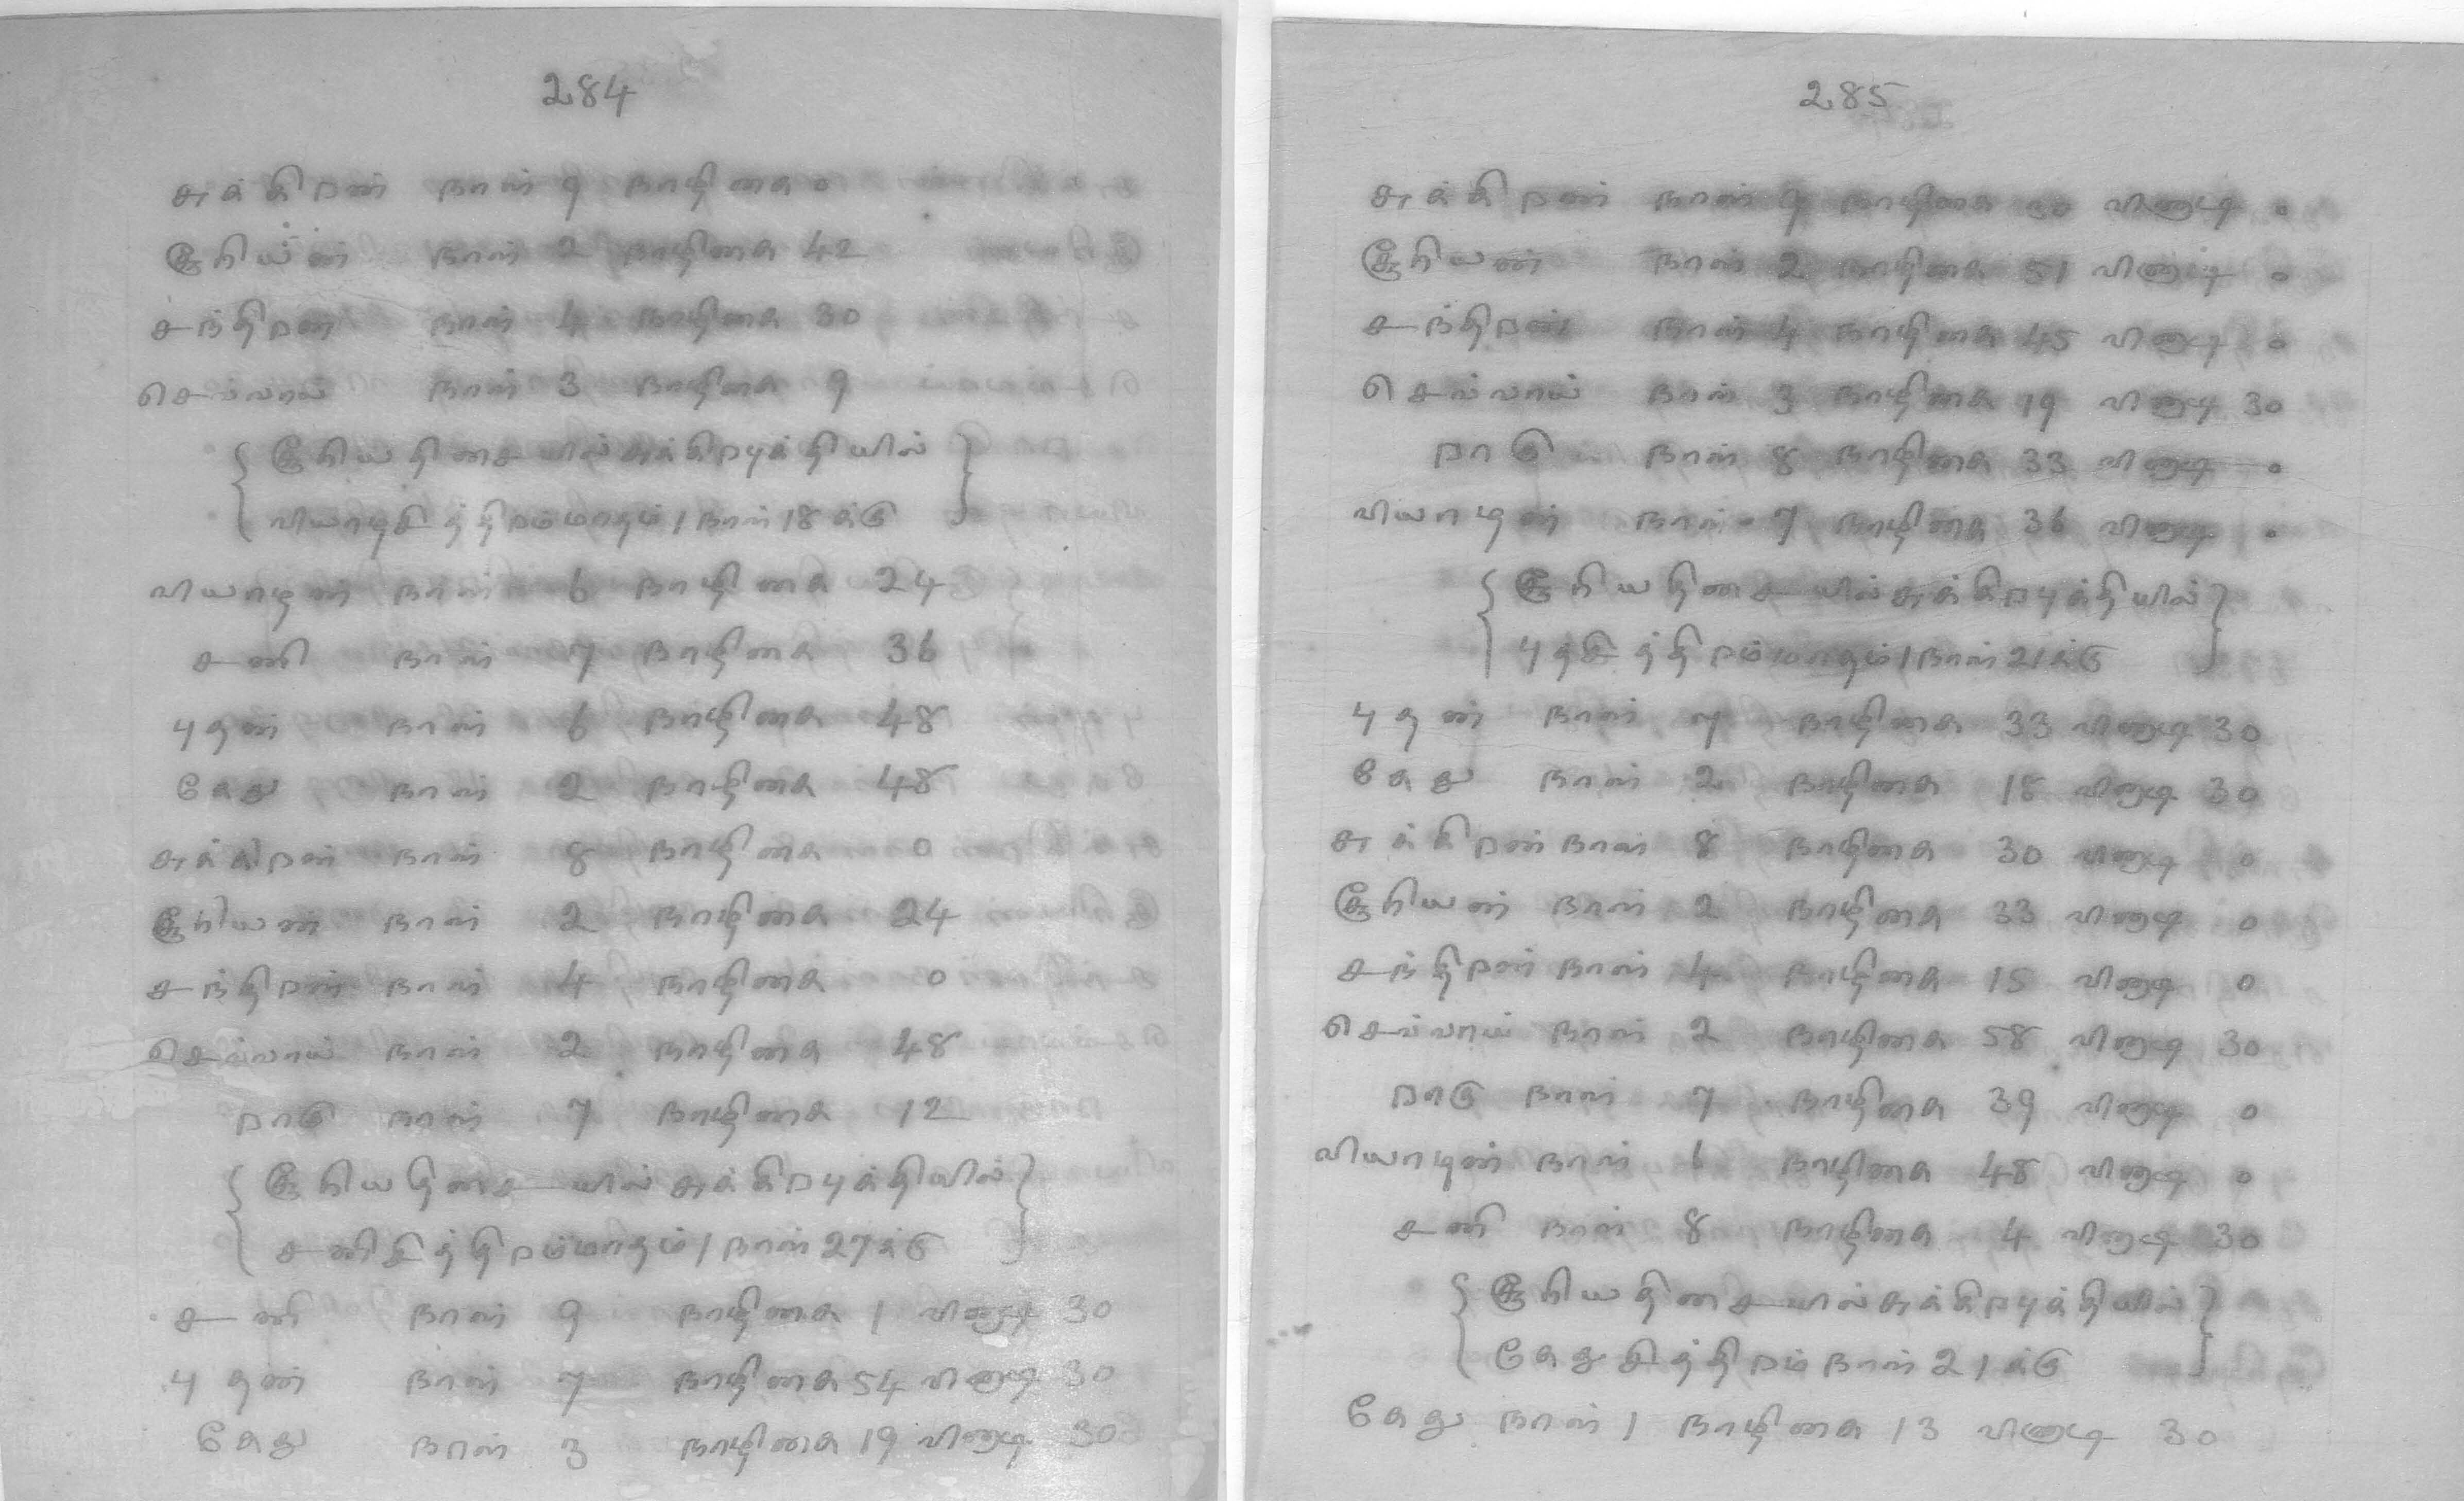 284
சுக்கிறன் நாள் 9 நாழிகை 0
சூரியன் நாள் 2 நாழிகை 42
சந்திறன் நாள் 4 நாழிகை 30
செவ்வாய் நாள் 3 நாழிகை 9
{ சூரிய திசையில் சுக்கிற புக்தியில்
வியாழசித்திறம் மாதம் 1 நாள் 18 க்கு }
வியாழன் நாள் 6 நாழிகை 24
சனி நாள் 7 நாழிகை 36
புதன் நாள் 6 நாழிகை 48
கேது நாள் 2 நாழிகை 48
சுக்கிறன் நாள் 8 நாழிகை 0
சூரியன் நாள் 2 நாழிகை 24
சந்திறன் நாள் 4 நாழிகை 0
செவ்வாய் நாள் 2 நாழிகை 48
றாகு நாள் 7 நாழிகை 12
{ சூரிய திசையில் சுக்கிற புக்தியில்
சனிசித்திறம் மாதம் 1 நாள் 27 க்கு }
சனி நாள் 9 நாழிகை 1 வினாடி 30
புதன் நாள் 7 நாழிகை 54 வினாடி 30
கேது நாள் 3 நாழிகை 19 வினாடி 30
285
சுக்கிறன் நாள் 9 நாழிகை 30 வினாடி 0
சூரியன் நாள் 2 நாழிகை 51 வினாடி 0
சந்திறன் நாள் 4 நாழிகை 45 வினாடி 0
செவ்வாய் நாள் 3 நாழிகை 19 வினாடி 30
றாகு நாள் 8 நாழிகை 33 வினாடி 0
வியாழன் நாள் 7 நாழிகை 36 வினாடி 0
{ சூரிய திசையில் சுக்கிற புக்தியில்
புதசித்திறம் மாதம் 1 நாள் 21 க்கு }
புதன் நாள் 7 நாழிகை 33 வினாடி 30
கேது நாள் 2 நாழிகை 18 வினாடி 30
சுக்கிறன் நாள் 8 நாழிகை 30 வினாடி 0
சூரியன் நாள் 2 நாழிகை 33 வினாடி 0
சந்திறன் நாள் 4 நாழிகை 15 வினாடி 0
செவ்வாய் நாள் 2 நாழிகை 58 வினாடி 30
றாகு நாள் 7 நாழிகை 39 வினாடி 0
வியாழன் நாள் 6 நாழிகை 48 வினாடி 0
சனி நாள் 8 நாழிகை 4 வினாடி 30
{ சூரிய திசையில் சுக்கிற புக்தியில்
கேது சித்திறம் நாள் 21 க்கு }
கேது நாள் 1 நாழிகை 13 வினாடி 30